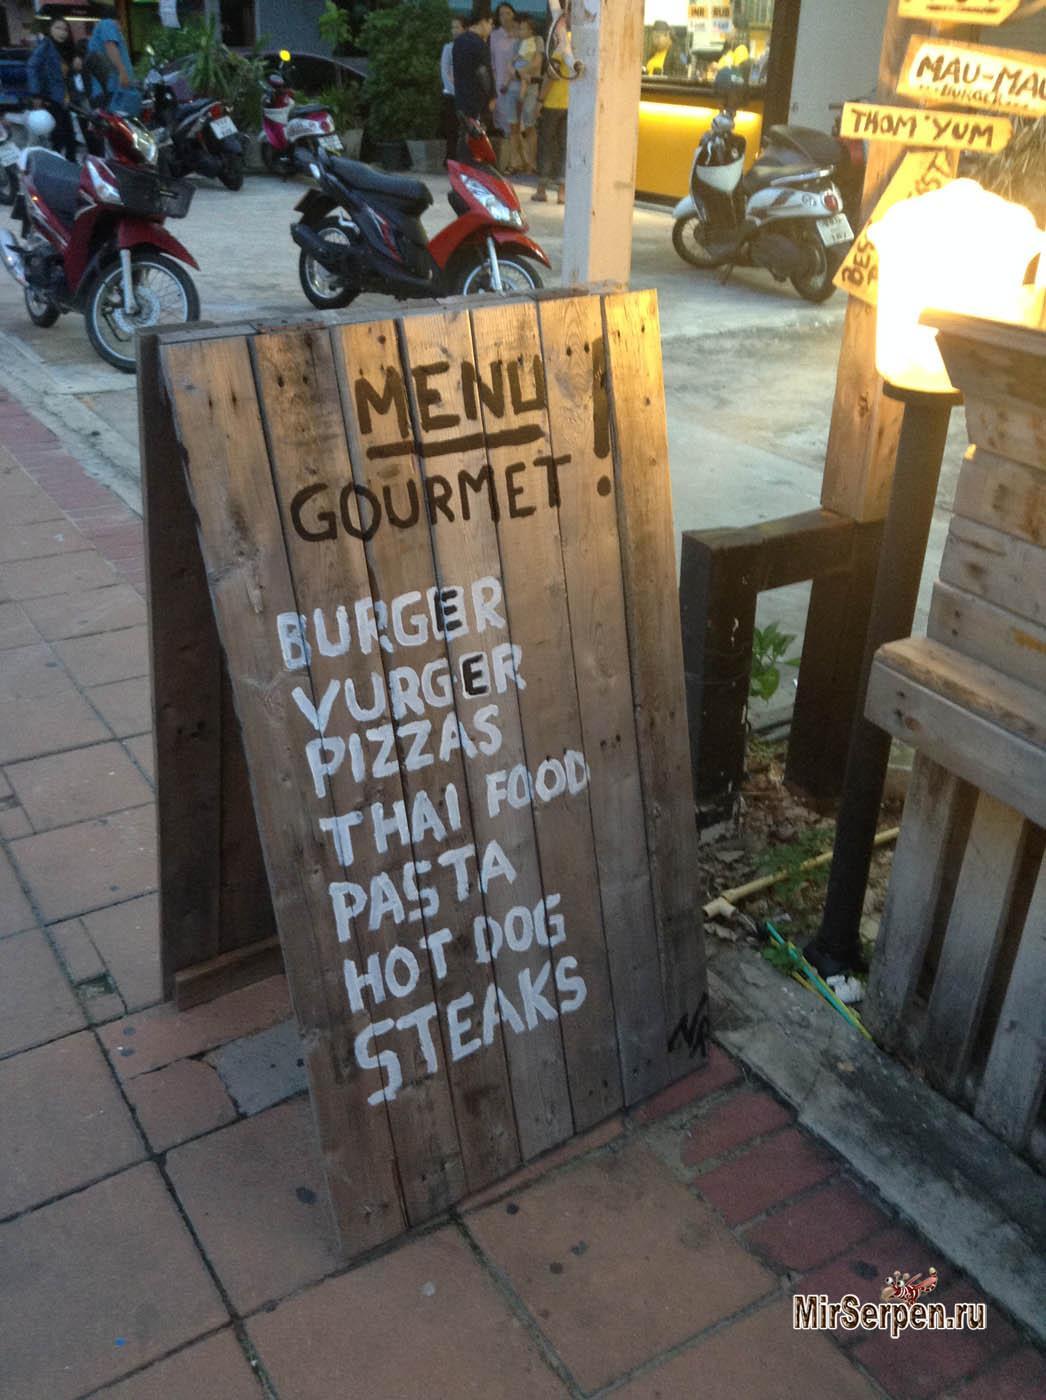 MAU-MAU
THOM YUM
MENU!
GOURMET
BURGER
VURGER
PIZZAS
THAI FOOD
PASTA
HOT DOG
STEAKS
MirSerpen.ru